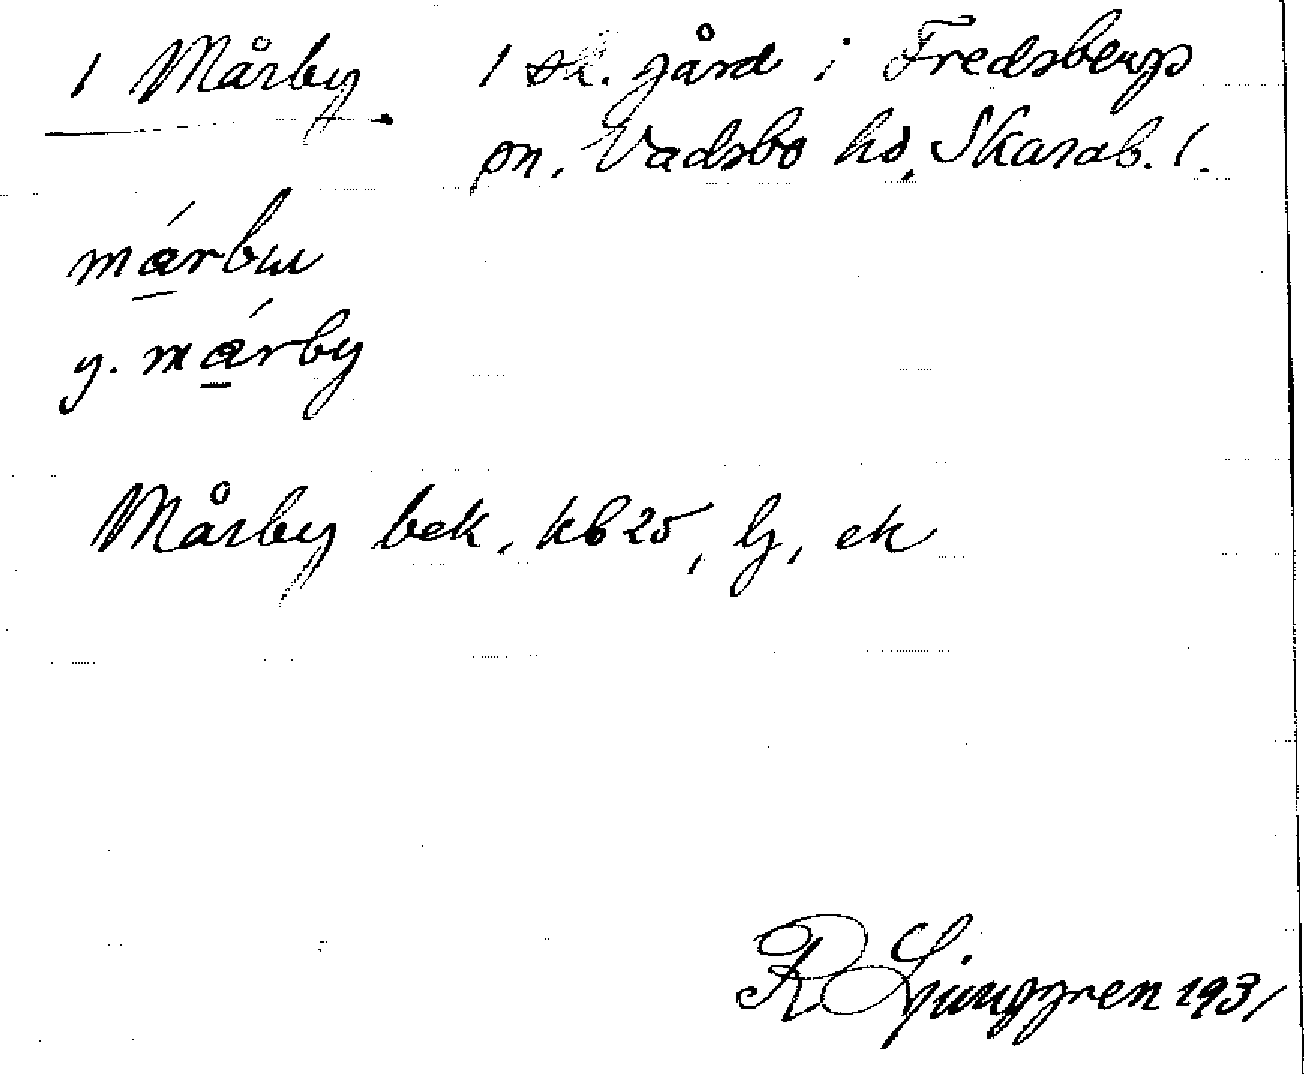 1 Mårby 1 sk. gård i Fredsbergs
sn. Vadsbo hd, Skarab. l.
márbɯ
y. márby
Mårby bek, kb 25, lj, ek
R Ljunggren 1931